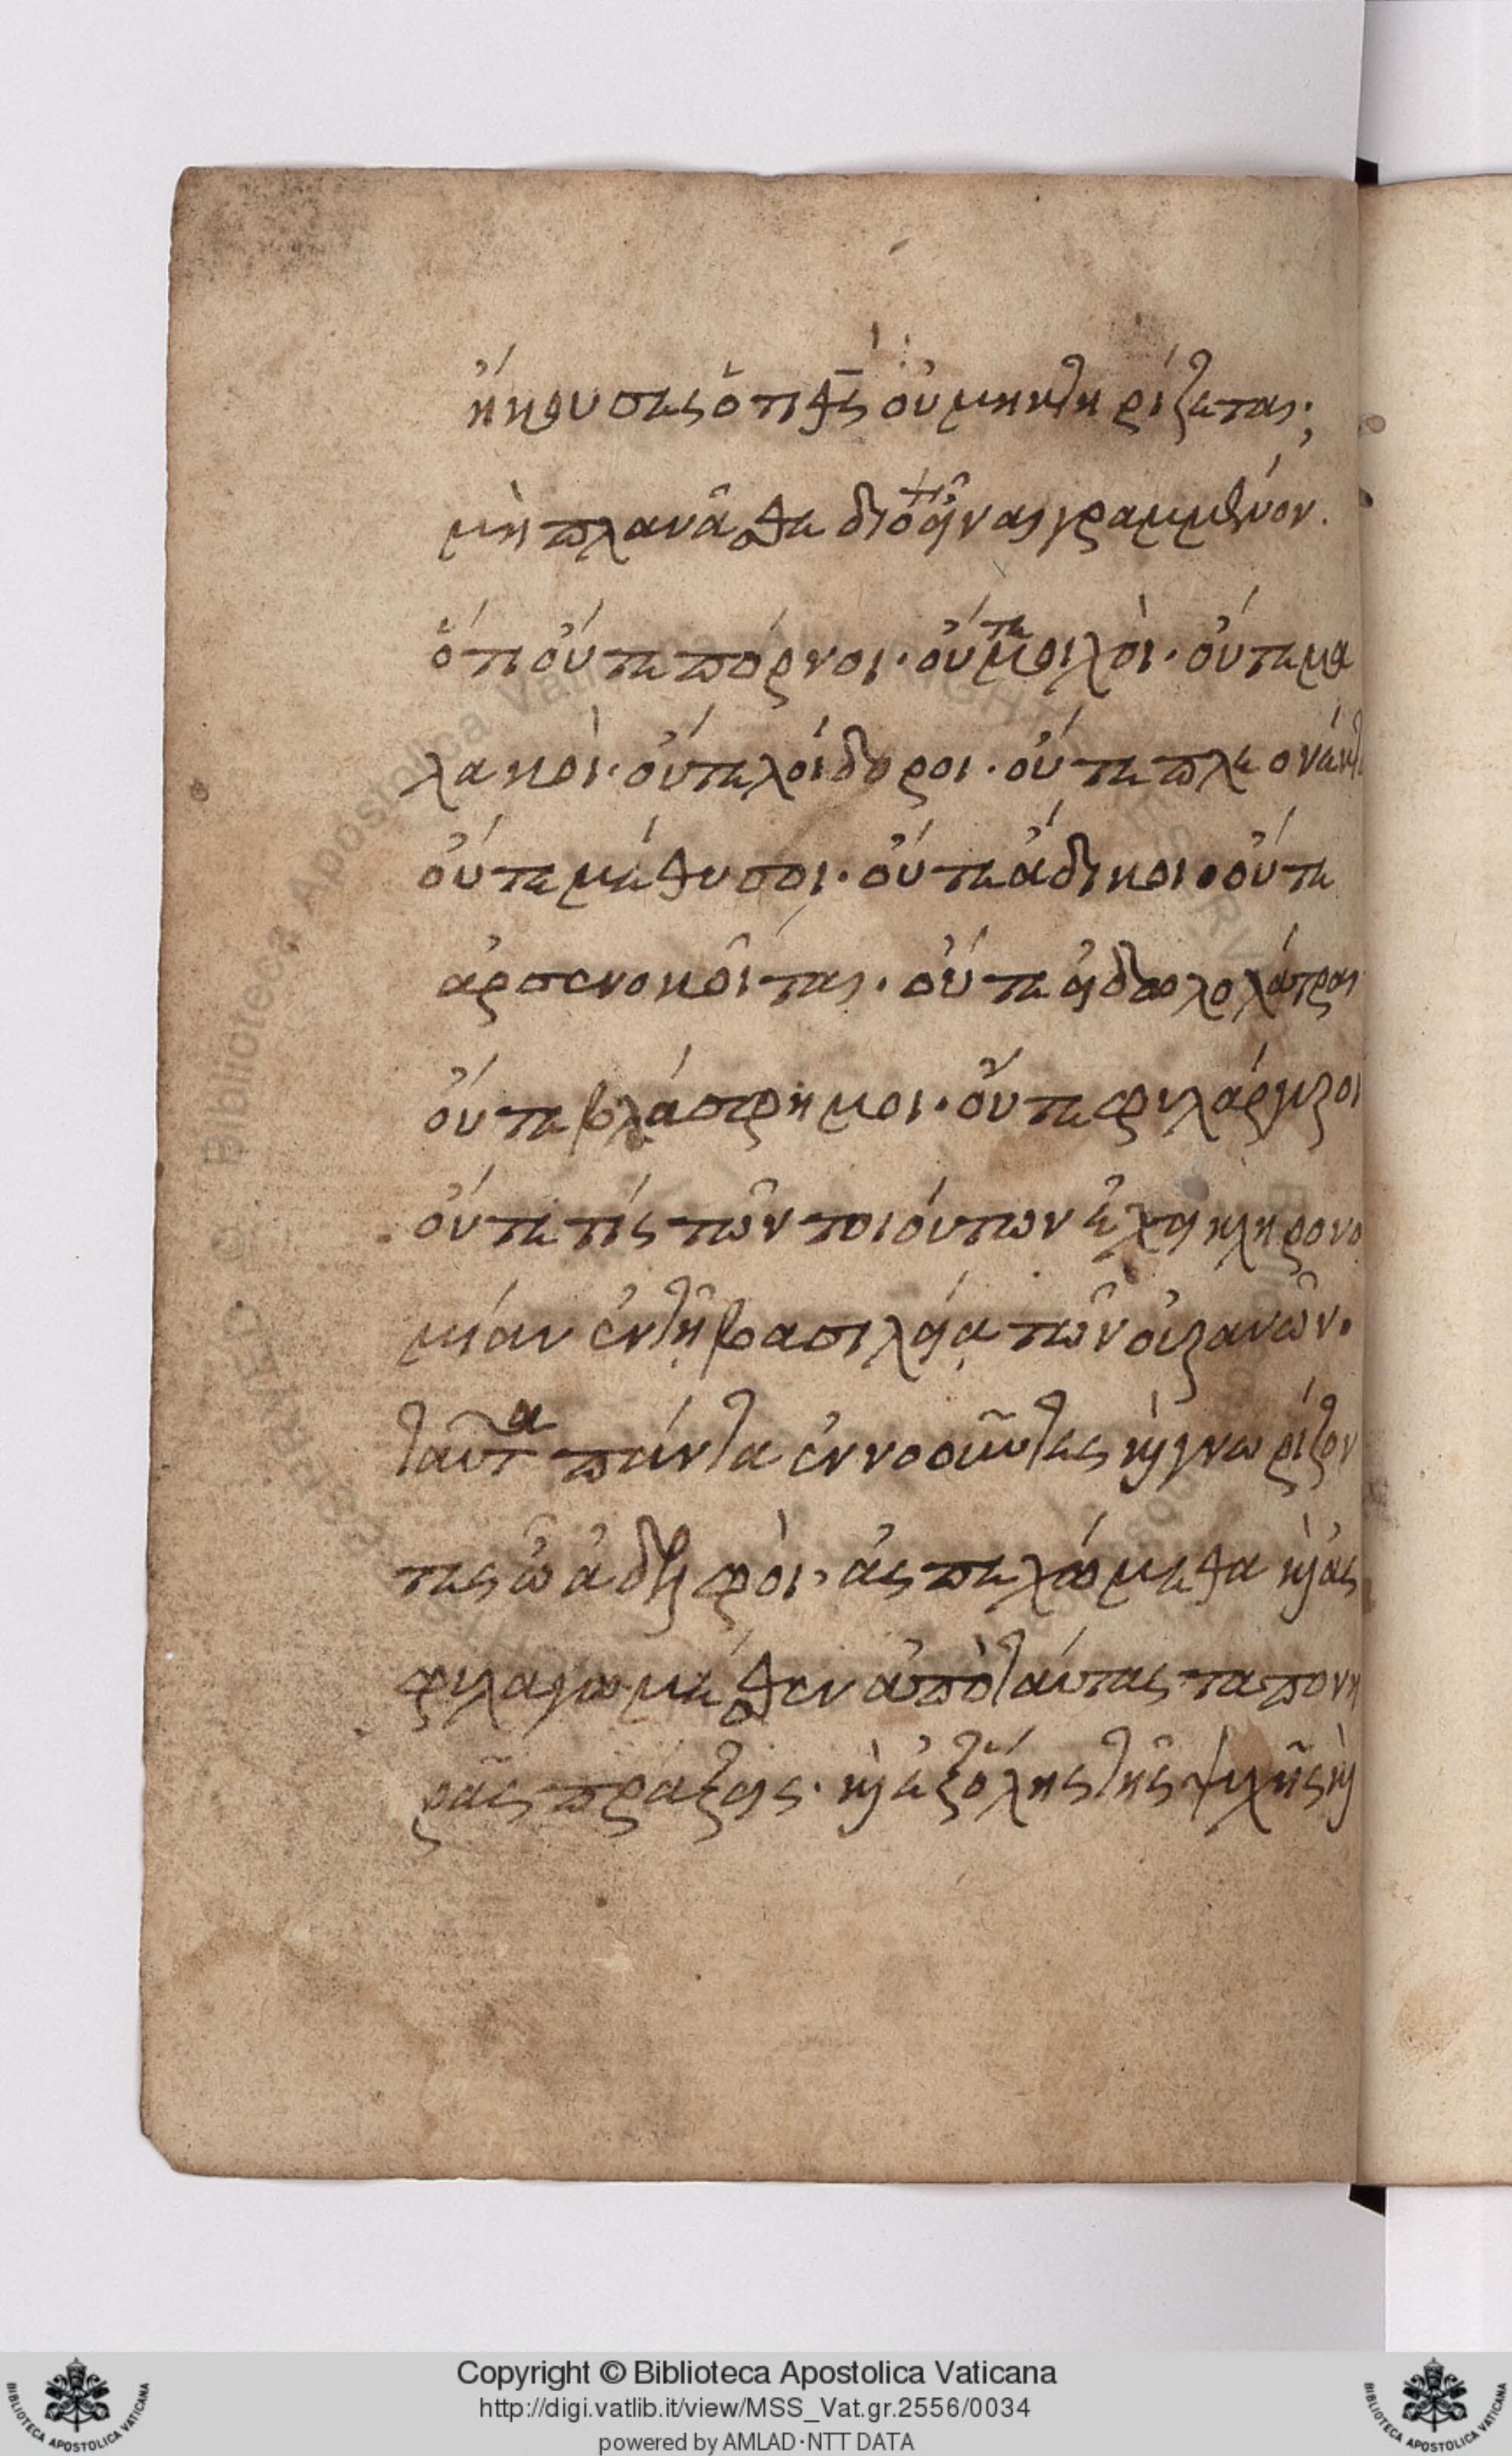 ἤκουσας ὅτι θ̅ς̅ οὐ μηκτηρίζεται;
μὴ πλανᾶσθε διότι εἶναι γραμμένον.
ὅτι οὔτε πόρνοι. οὔτε μοιχοὶ. οὔτε μα
λακοὶ. οὔτε λοίδοροι. οὔτε πλεονέκτ
οὔτε μέθυσοι. οὔτε ἄδικοι. οὔτε
ἀρσενοκοῖται. οὔτε εἰδωλολάτραι
οὔτε βλάσφημοι. οὔτε φιλάργυροι
οὔτε τίς τῶν τοιούτων ἔχει κληρονο
μίαν ἐν τῇ βασιλείᾳ τῶν οὐρανῶν.
ταῦτα πάντα ἐννοοῦντες καὶ γνωρίζον
τες ὦ ἀδελφοὶ, ἀς πελώμεθα καὶ ἀς
φυλαγώμεσθεν ἀπὸ ταύτας τας πονη
ρᾶς πράξεις. καὶ ἐξ ὅλης τῆς ψυχῆς καὶ
Copyright © Biblioteca Apostolica Vaticana
http://digi.vatlib.it/view/MSS_Vat.gr.2556/0034
powered by AMLAD·NTT DATA